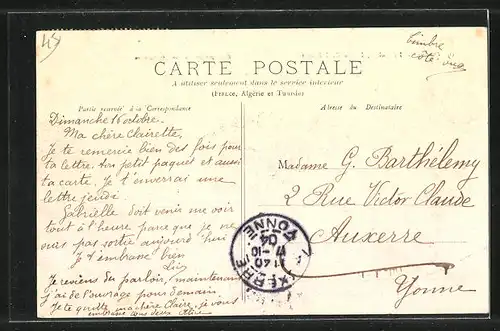 45
timbre
côté
CARTE POSTALE
A utiliser seulement dans le service intérieur
(France, Algérie et Tunisie)
Partie réservée à la Correspondance
Adresse du Destinataire
Dimanche 16 octobre.
Ma chère Clairette,
Je te remercie bien des fois pour
ta lettre. ton petit paquet et aussi
ta carte. Je t'enverrai une
lettre jeudi.
Gabrielle doit venir me voir
tout à l'heure parce que je ne
suis pas sortie aujourd'hui
Je t'embrasse bien
Je reviens du parloir, maintenant
j'ai de l'ouvrage pour demain.
Je te quitte ma chère Claire, je vous
embrasse tous deux
Madame G. Barthélemy
2 Rue Victor Claude
Auxerre
Yonne
AUXERRE
YONNE
17-10
04